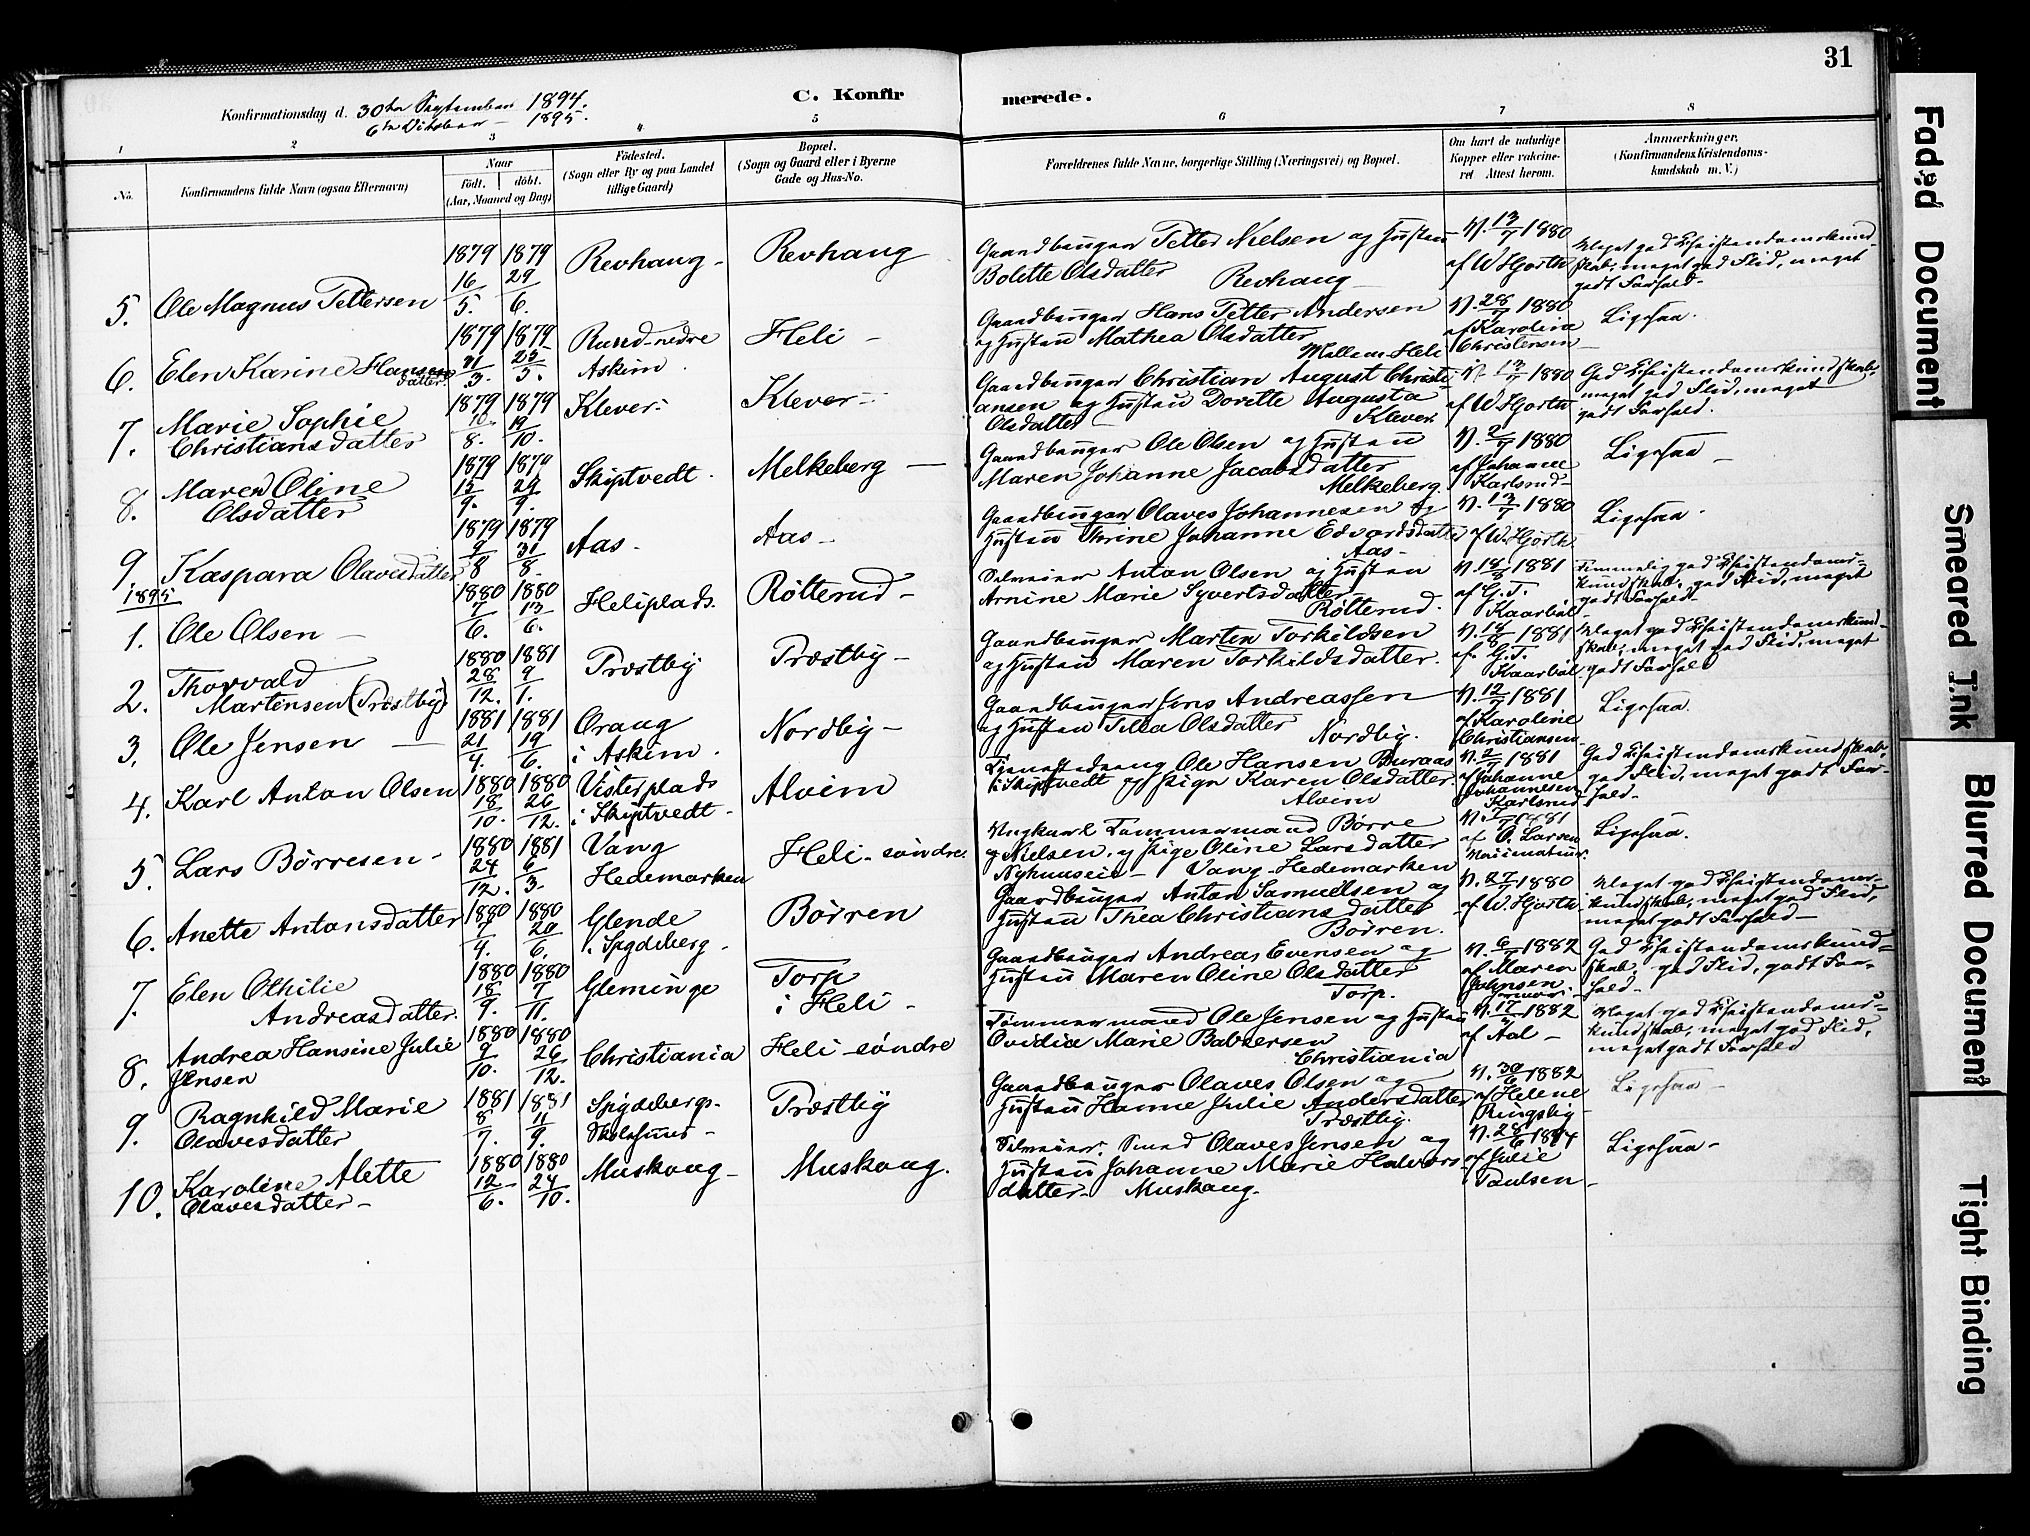 31
C. Konfirmerede.
Konfirmationsdag d. 30te September 1894.
6te Oktober — 1895.
1 2 3 4 5 6 7 8
No.
Konfirmandens fulde Navn (ogsaa Efternavn)
Naar
født. døbt.
(Aar, Maaned og Dag)
Fødested.
(Sogn eller By og paa Landet
tillige Gaard)
Bopæl.
(Sogn og Gaard eller i Byerne
Gade og Hus-No.
Forældrenes fulde Navne, borgerlige Stilling (Næringsvei) og Bopæl.
Om havt de naturlige
Kopper eller vakcine-
ret Attest herom.
Anmærkninger,
(Konfirmandens Kristendoms-
kundskab m. V.)
5. Ole Magnus Pettersen
1879 16/5. 1879 29/6.
Revhaug - Revhaug
Gaardbruger Petter Nielsen og Hustru
Bolette Olsdatter Revhaug
V. 13/7 1880
af W Hjorth
Meget god Christendomskund-
skab, meget god Flid, meget
godt Forhold.
6. Elen Karine Hansen
datter.
1879 21/3. 1879 25/5.
Rud-nedre
Askim.
Heli -
Gaardbruger Hans Petter Andersen
og Hustru Mathea Olsdatter
Mellem Heli
V. 28/7 1880
af Karoline
Christensen
Ligesaa.
7. Marie Sophie
Christiansdatter
1879 10/8. 1879 19/10.
Klever: Klever
Gaardbruger Christian August Christi-
ansen og Hustru Dorette Augusta
Olsdatter Klever.
V. 13/7 1880
af W Hjorth
God Christendomskundskab,
meget god Flid, meget
godt Forhold.
8. Maren Oline
Olsdatter
1879 15/9. 1879 29/9.
Skiptvedt. Melkeberg —
Gaardbruger Ole Olsen og Hustru
Maren Johanne Jacobsdatter
Melkeberg.
V. 2/7 1880
af Johanne
Karlsrud
Ligesaa —
9. Kaspara Olavesdatter
1879 9/8 1879 31/8.
Aas - Aas -
Gaardbruger Olaves Johannesen og
Hustru Thrine Johanne Edvardsdatter
Aas -
V. 13/7 1880
af W Hjorth.
Ligesaa.
1895
1. Ole Olsen —
1880 7/6. 1880 13/6.
Heliplads. Røtterud -
Selveier Anton Olsen og Hustru
Arnine Marie Syvertsdatter
Røtterud.
V. 18/8 1881
af G. T.
Kaarbøl
Temmelig god Christendoms-
kundskab, god Flid, meget
godt Forhold.
2. Thorvald
Martinsen (Præstby)
1880 28/12. 1881 9/1.
Præstby Præstby -
Gaardbruger Martin Torkildsen
og Hustru Maren Torkildsdatter.
V. 18/8 1881
af G. T.
Kaarbøl
Meget god Christendomskund-
skab, meget god Flid, meget
godt Forhold
3. Ole Jensen —
1881 21/4. 1881 19/6.
Oraug
i Askim.
Nordby -
Gaardbruger Jens Andreassen
og Hustru Tilla Olsdatter
Nordby.
V. 12/7 1881
af Karoline
Christiansen
Ligesaa.
4. Karl Anton Olsen
1880 18/10. 1880 26/12.
Visterplads
i Skiptvedt -
Alvim
Tjenestedreng Ole Hansen Buraas
i Skiptvedt og Pige Karen Olsdatter
Alvim
V. 2/7 1881
af Johanne
Johannesen
Karlsrud
God Christendomskundskab,
god Flid, meget godt For-
hold -
5. Lars Børresen -
1880 24/12. 1881 6/3.
Vang
Hedemarken
Heli - søndre
Ungkarl Tømmermand Børre
Nielsen og Pige Oline Larsdatter
Vang - Hedemarken
af O. Larsen
Ligesaa.
6. Anette Antonsdatter
1880 7/4. 1880 20/6.
Glende
i Spydeberg.
Børren
Gaardbruger Anton Samuelsen og
Hustru Thea Christiansdatter
Børren.
V. 27/7 1880
af W. Hjorth
Meget god Christendoms-
kundskab, meget god Flid,
meget godt Forhold
7. Elen Othilie
Andreasdatter.
1880 18/9. 1880 7/11.
Gleminge
Torp
i Heli -
Gaardbruger Andreas Evensen og
Hustru Maren Oline Olsdatter
Torp.
V. 6/7 1882
af Maren
Johnsen
God Christendomskund-
skab, god Flid, godt For-
hold -
8. Andrea Hansine Julie
Jensen
1880 9/10. 1880 26/12.
Christiania Heli - søndre
Tømmermand Ole Jensen og Hustru
Ovidia Marie Baltzersen
Christiania
1882
af Aal -
Meget god Christendoms-
kundskab, meget god Flid,
meget godt Forhold
9. Ragnhild Marie
Olavesdatter
1881 8/7. 1881 11/9.
Spydebergs-
Skolehuus -
Præstby
Gaardbruger Olaves Olsen og
Hustru Hanne Julie Andersdatter
Præstby.
V. 30/6 1882
af Helene
Ringsby
Ligesaa —
10. Karoline Alette
Olavesdatter -
1880 12/6. 1880 24/10.
Muskaug - Muskaug.
Selveier Smed Olaves Jensen og
Hustru Johanne Marie Halvors-
datter - Muskaug.
V. 28/6 1884
af Julie
Paulsen -
Ligesaa -
Faded Document
Smeared Ink
Blurred Document
Tight Binding